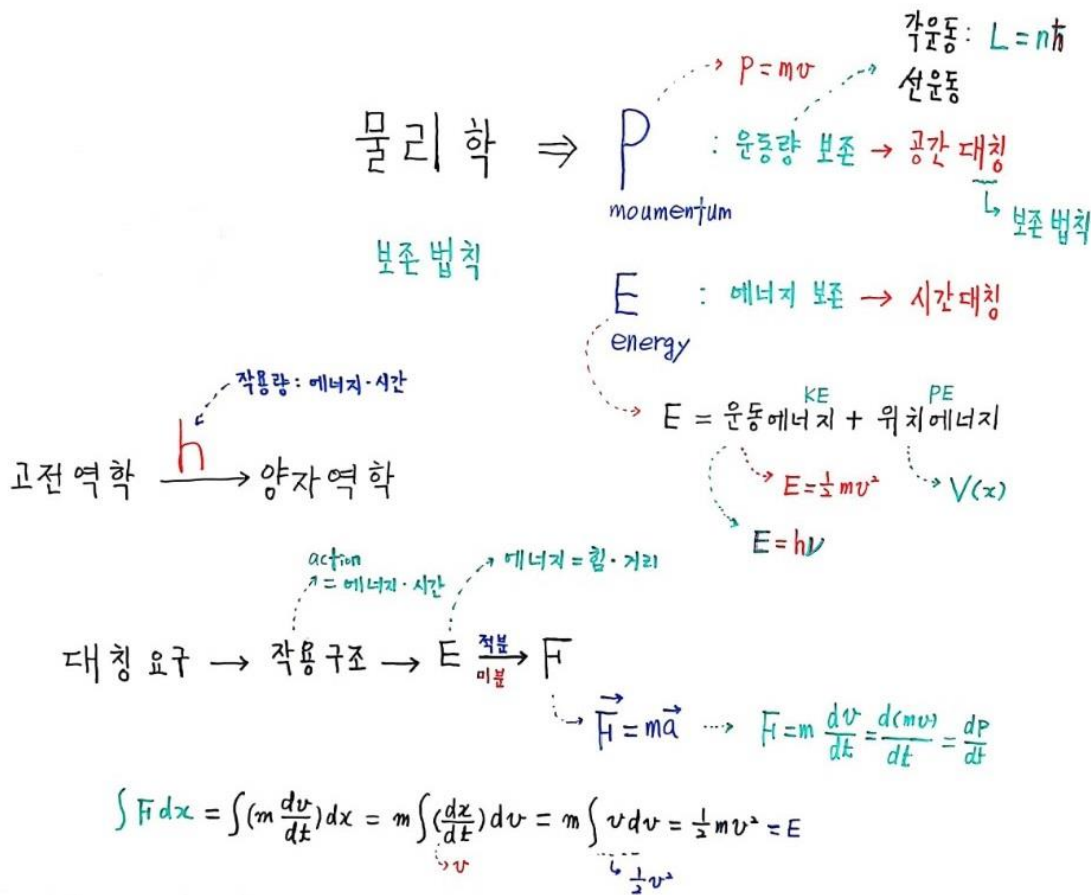 각운동: L = nħ
P = mv
선운동
물리학 ⇒ P : 운동량 보존 → 공간 대칭
moumentum
보존 법칙
보존 법칙
E : 에너지 보존 → 시간 대칭
energy
작용량: 에너지·시간
KE PE
E = 운동에너지 + 위치에너지
h
고전역학 → 양자역학
E = ½mv² V(x)
E = hν
action
= 에너지·시간
에너지 = 힘·거리
대칭 요구 → 작용구조 → E 적분 → 미분 F
F⃗ = ma⃗ ⋯> F = m dv/dt = d(mv)/dt = dP/dt
∫ F dx = ∫(m dv/dt)dx = m∫(dx/dt)dv = m∫ v dv = ½mv² = E
v ½v²